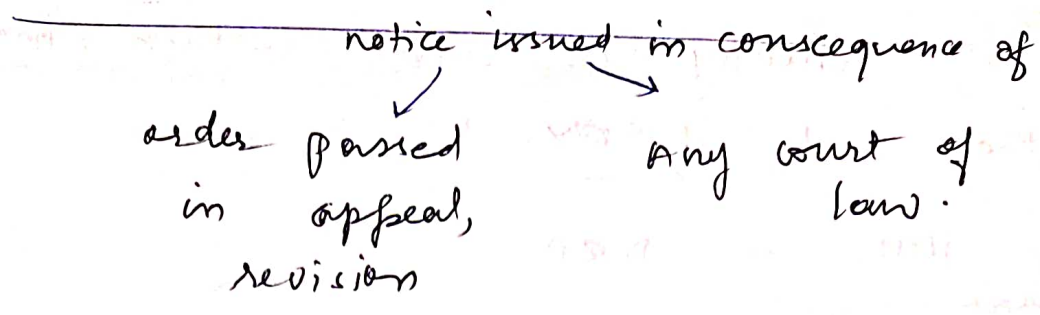 notice issued in conscequence of
order passed
in appeal,
revision
Any court of
law.